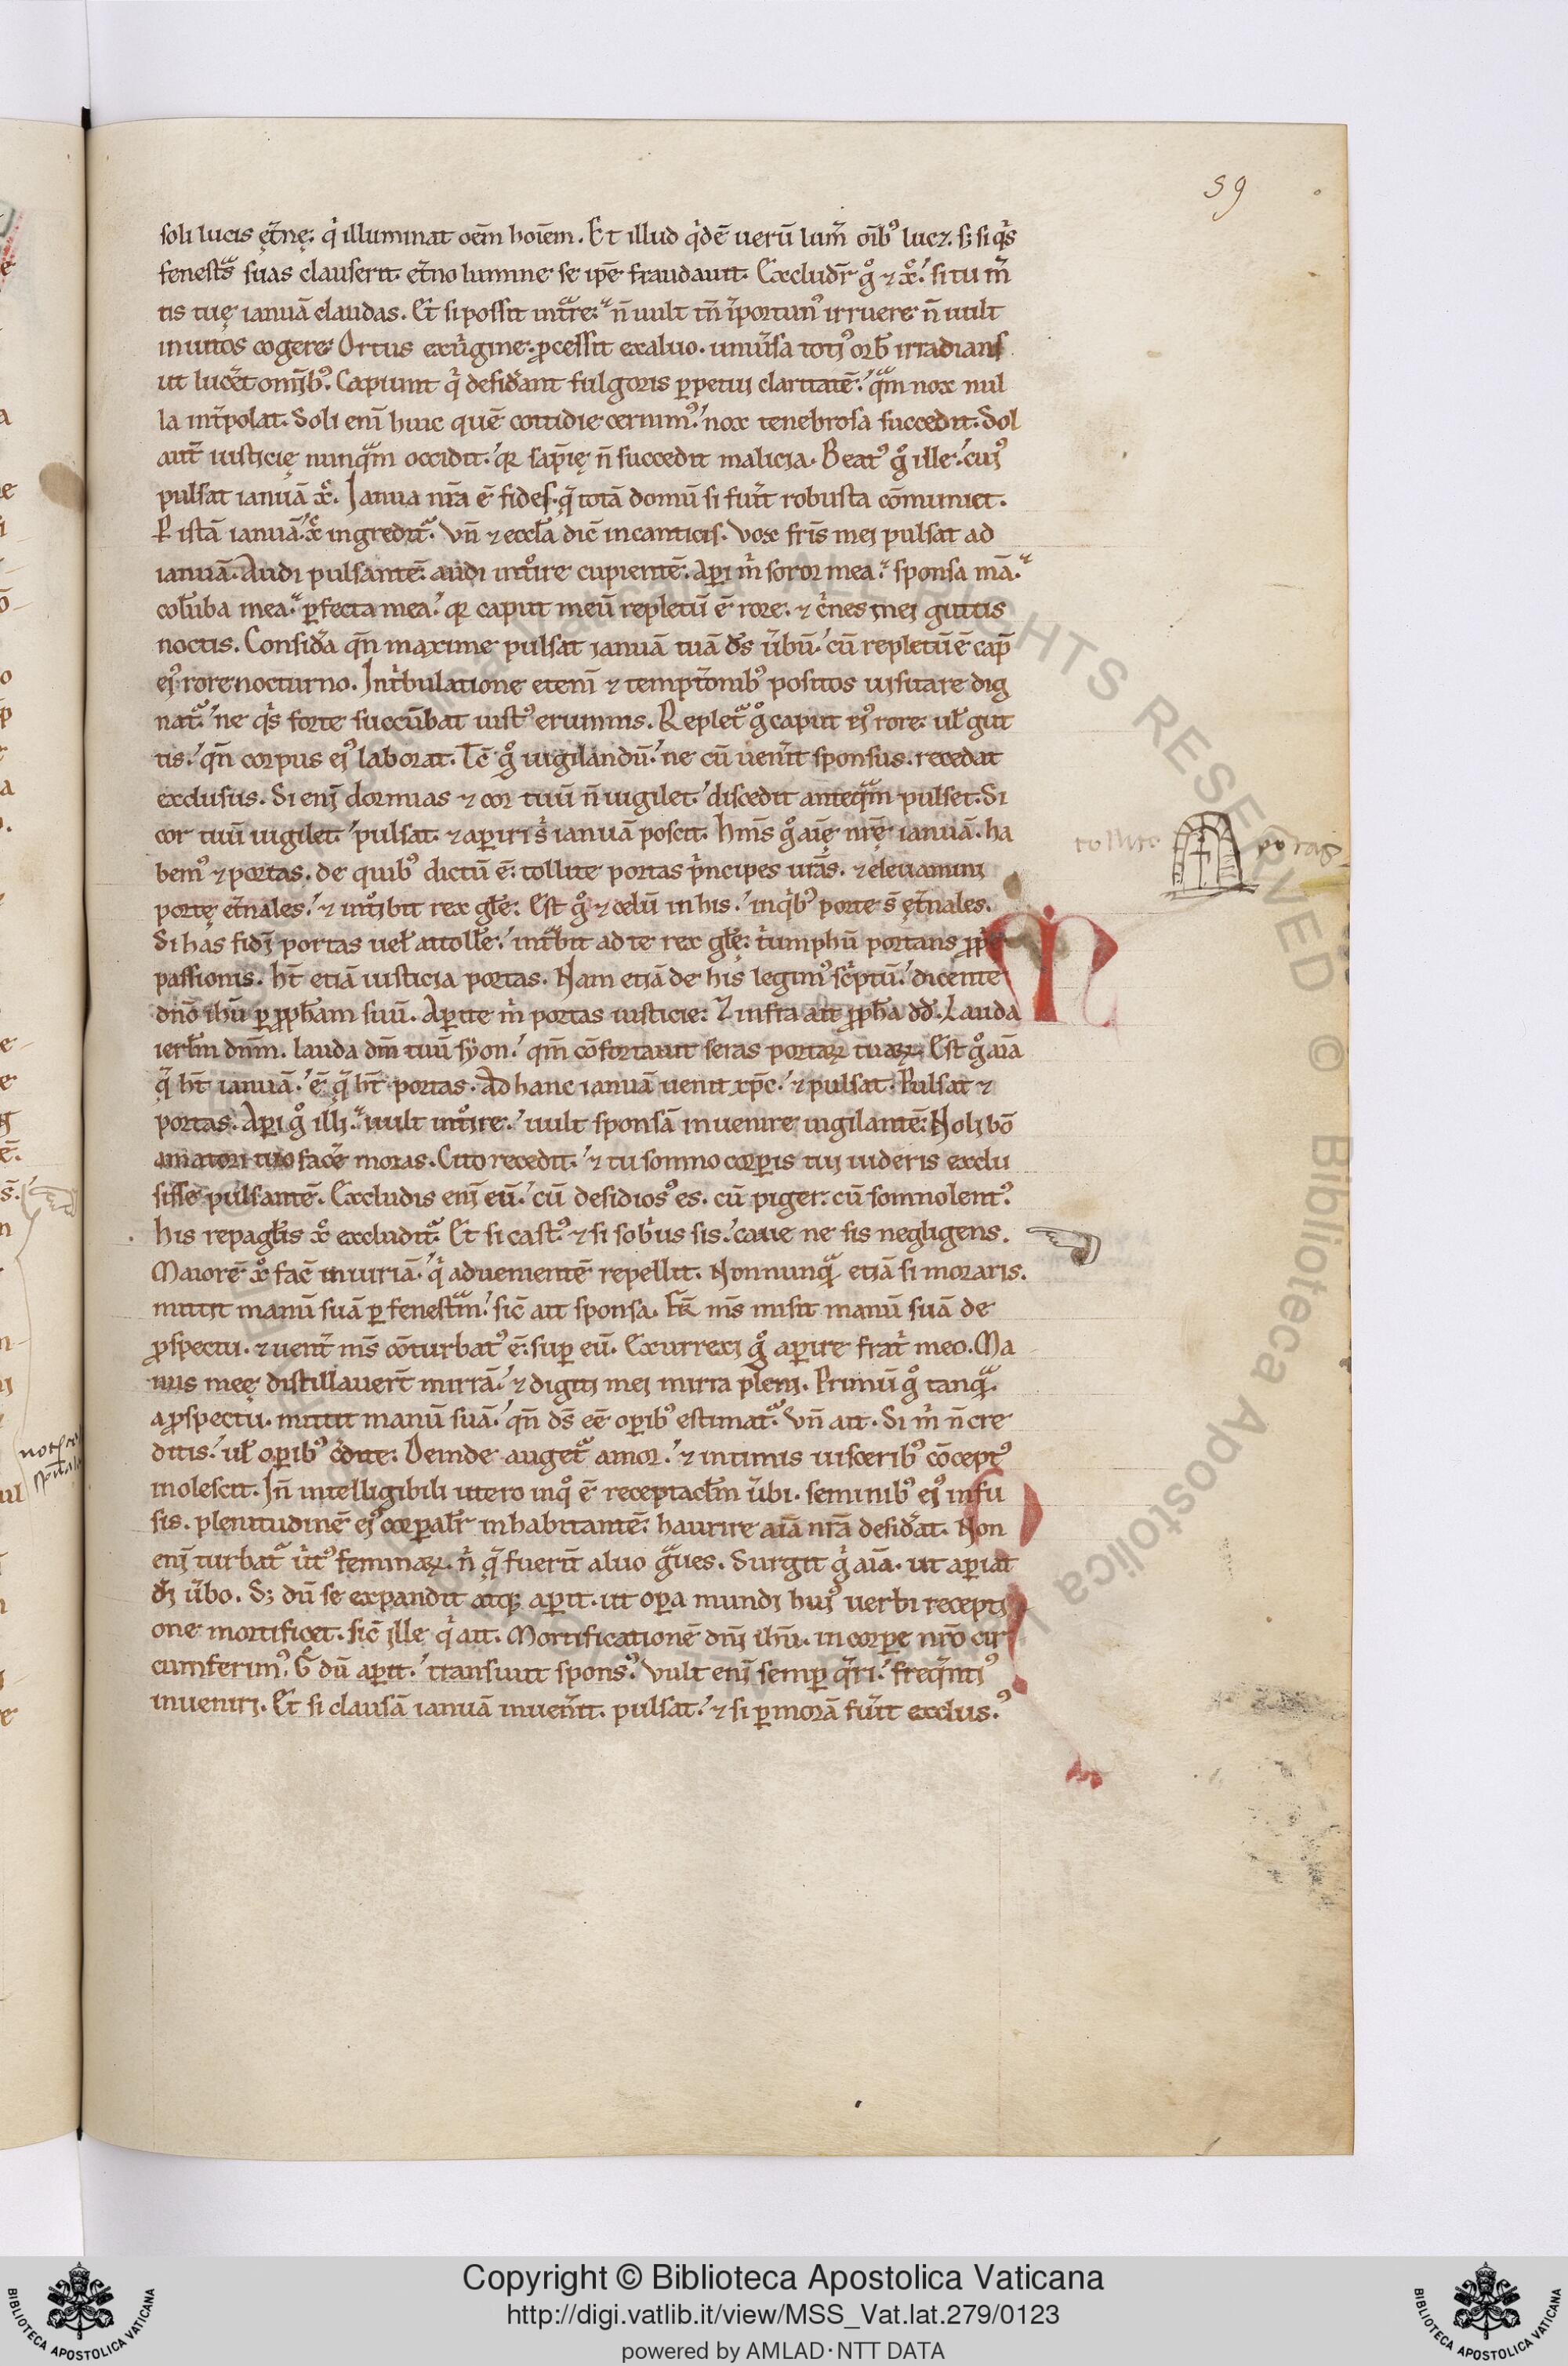 59
soli lucis ęt̄nę: q̇ illuminat oēm hoīem. Et illud q̇dē uerū lum̄ oīb᷒ lucꝫ. sꝫ si q̇s
fenest̄s suas clauserit. et̄no lumine se ipē fraudauit. Excludr̄ gͦ ⁊ xͨ.ʼ si tu m̄
tis tuę ianuā claudas. Et si possit int̄re: n̄ uult tn̄ īportun᷒ irruere n̄ uult
inuitos cogere. Ortus ex uirgine. ꝓcessit ex aluo. uniu̓sa toti᷒ orb̄ irradians
ut lucet̄ omīb᷒. Capiunt q̇ desid̓ant fulgoris ꝑpetui claritatē.ʼ qᵃm nox nul
la int̄polat. Soli enī huic quē cottidie cernim᷒.ʼ nox tenebrosa succedit. Sol
aut̄ iusticię nunqᵃm occidit.ʼ qꝛ sap̄ię n̄ succedit malicia. Beat᷒ gͦ ille.ʼ cui᷒
pulsat ianuā xͨ. Ianua nr̄a ē fides. q̄ totā domū si fu̓it robusta cōmunit.
P istā ianuā.ʼ xͨ ingreditᵃ. Vn̄ ⁊ eccl̄a dic̄ in canticis. Vox fr̄is mei pulsat ad
ianuā. Audi pulsantē: audi intͦire cupientē. Aꝑi m̓ soror mea. sponsa mā.
colūba mea. ꝑfecta mea.ʼ qꝛ caput meū repletū ē rore: ⁊ c̓nes mei guttis
noctis. Consid̓a qn̄ maxime pulsat ianuā tuā d̄s u̓bū.ʼ cū repletū ē cap̄
ei᷒ rore nocturno. In t̓bulatione etenī ⁊ tempt̄onib᷒ positos uisitare dig
natᵃ.ʼ ne q̇s forte succūbat uict᷒ erumnis. Repletᵃ gͦ caput ei᷒ rore: ul̄ gut
tis.ʼ qn̄ corpus ei᷒ laborat. Tc̄ gͦ uigilandū.ʼ ne cū uen̓it sponsus. recedat
exclusus. Si enī dormias ⁊ cor tuū n̄ uigilet.ʼ discedit anteqᵃm pulset. Si
cor tuū uigilet.ʼ pulsat. ⁊ aꝑiri s̓ ianuā poscit. Hm̄s gͦ aīę nr̄ę ianuā. ha
bem᷒ ⁊ portas. de quib᷒ dictū ē: tollite portas p̓ncipes ur̄as. ⁊ eleuamini
portę et̄nales.ʼ ⁊ intͦibit rex gl̄e: Est gͦ ⁊ celū in his.ʼ in q̇b᷒ porte s̄ ęt̄nales.
Si has fidī portas uel̄ attoll̄e.ʼ intᵃbit ad te rex gl̄e: t̓umphū portans ꝓp̄e
passionis. ht̄ etiā iusticia portas. Nam etiā de his legim᷒ sc̓ptū.ʼ dicente
dn̄o ih̄u ꝑ ꝓph̄am suū. Aꝑite m̓ portas iusticie: ⁊ infra ait ꝓph̄a dd̄. Lauda
ierl̄m dn̄m. lauda dm̄ tuū syon.ʼ qm̄ cōfortauit seras portaꝝ tuaꝝ. Est gͦ aīa
q̄ ht̄ ianuā.ʼ ē q̄ ht̄ portas. Ad hanc ianuā uenit xp̄c.ʼ ⁊ pulsat. Pulsat ⁊
portas. Aꝑi gͦ illi. uult intͦire.ʼ uult sponsā inuenire uigilantē: Noli bō
amatori tuo fac̄e moras. Cito recedit.ʼ ⁊ tu somno corꝑis tui uideris exclu
sisse pulsantē. Excludis enī eū.ʼ cū desidios᷒ es. cū piger: cū somnolent᷒.
His repagl̄is xͨ excluditᵃ. Et si cast᷒ ⁊ si sob̓us sis.ʼ caue ne sis negligens.
Maiorē xͦ fac̄ iniuriā.ʼ q̇ aduenientē repellit. Nonnunqᵃ etiā si moraris.
mittit manū suā ꝑ fenestᵃm.ʼ sic̄ ait sponsa. Fr̄ ms̄ misit manū suā de
ꝓspectu. ⁊ uent̄ ms̄ cōturbat᷒ ē: suꝑ eū. Exurrexi gͦ aꝑire frat̓ meo. Ma
nus meę distillauer̄t mirrā.ʼ ⁊ digiti mei mirra pleni. Primū gͦ tanqᵃ.
a ꝓspectu. mittit manū suā.ʼ qn̄ ds̄ eē oꝑib᷒ estimatᵃ. Vn̄ ait. Si m̓ n̄ cre
ditis.ʼ ul̄ oꝑib᷒ c̓dite: Deinde augetᵃ amor.ʼ ⁊ intimis uiscerib᷒ cōcept᷒
inolescit. In̄ intelligibili utero inqͦ ē receptacl̄m u̓bi. seminib᷒ ei᷒ infu
sis. plenitudinē ei᷒ corꝑalit̄ inhabitantē: haurire aīa nr̄a desid̓at. Non
enī turbatᵃ u̓t᷒ feminaꝝ. n̓ q̄ fuer̄t aluo gᵃues. Surgit g̓ aīa. ut aꝑiat
dī u̓bo. Sꝫ dū se expandit atqꝫ aꝑit. ut oꝑa mundi hui᷒ uerbi recepti
one mortificet. sic̄ ille q̇ ait. Mortificationē dn̄i ih̄u. in corꝑe nr̄o cir
cumferim᷒. G̓ dū aꝑit.ʼ transiuit spons᷒. Vult enī semꝑ q̄ri.ʼ freq̄nti᷒
inueniri. Et si clausā ianuā inuen̓it. pulsat.ʼ ⁊ si ꝑ morā fu̓it exclus᷒.
tollite portas
Copyright © Biblioteca Apostolica Vaticana
http://digi.vatlib.it/view/MSS_Vat.lat.279/0123
powered by AMLAD·NTT DATA
BIBLIOTECA APOSTOLICA VATICANA
BIBLIOTECA APOSTOLICA VATICANA